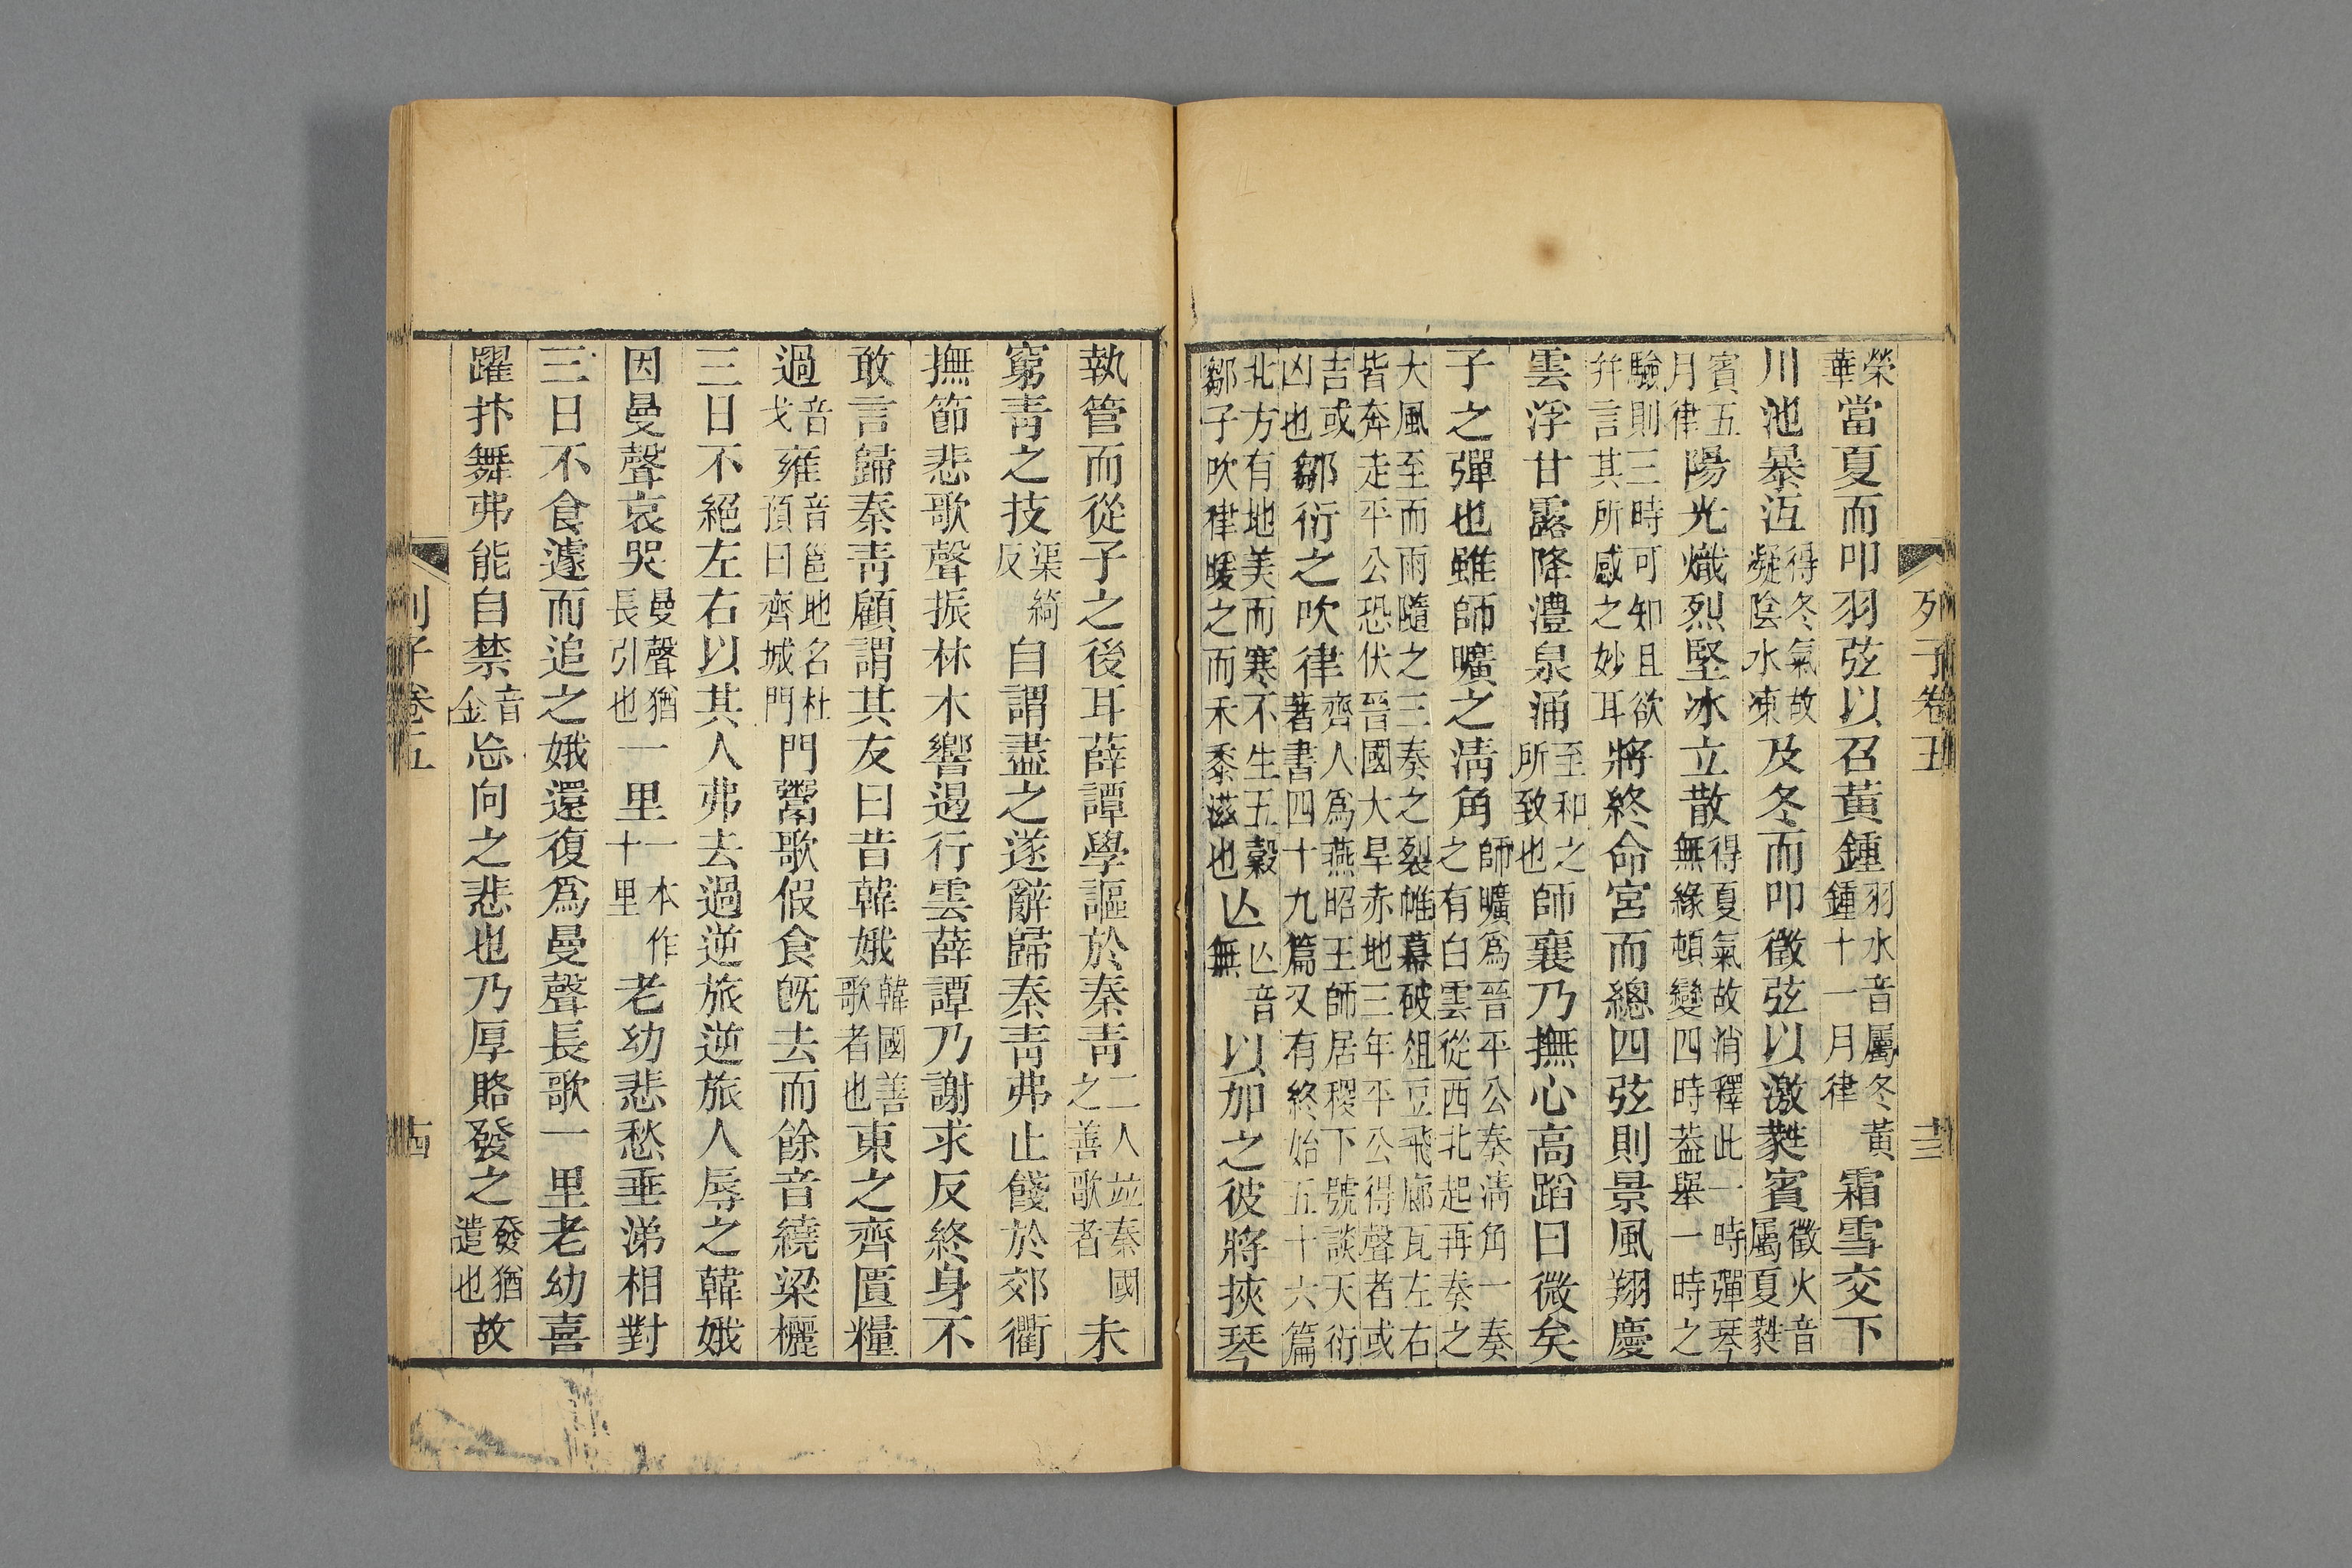 列子卷五
十三
榮華當夏而叩羽弦以召黃鍾羽水音屬冬黃鍾十一月律霜雪交下
川池暴沍得冬氣故凝陰水凍及冬而叩徵弦以激蕤賓徵火音屬夏蕤
賓五月律陽光熾烈堅冰立散得夏氣故消釋此一時彈琴無緣頓變四時葢舉一時之
驗則三時可知且欲幷言其所感之妙耳將終命宮而總四弦則景風翔慶
雲浮甘露降澧泉涌至和之所致也師襄乃撫心高蹈曰微矣
子之彈也雖師曠之淸角師曠爲晉平公奏淸角一奏之有白雲從西北起再奏之
大風至而雨隨之三奏之裂帷幕破俎豆飛廊瓦左右皆奔走平公恐伏晉國大旱赤地三年平公得聲者或
吉或凶也鄒衍之吹律齊人爲燕昭王師居稷下號談天衍著書四十九篇又有終始五十六篇
北方有地美而寒不生五穀鄒子吹律暖之而禾黍滋也亾亾音無以加之彼將挾琴
執管而從子之後耳薛譚學謳於秦靑二人竝秦國之善歌者未
窮靑之技渠綺反自謂盡之遂辭歸秦靑弗止餞於郊衢
撫節悲歌聲振林木響遏行雲薛譚乃謝求反終身不
敢言歸秦靑顧謂其友曰昔韓娥韓國善歌者也東之齊匱糧
過音戈雍音邕地名杜預曰齊城門門鬻歌假食旣去而餘音繞梁欐
三日不絕左右以其人弗去過逆旅逆旅人辱之韓娥
因曼聲哀哭曼聲猶長引也一里一本作十里老幼悲愁垂涕相對
三日不食遽而追之娥還復爲曼聲長歌一里老幼喜
躍抃舞弗能自禁音金忘向之悲也乃厚賂發之發猶遣也故
列子卷五
十四